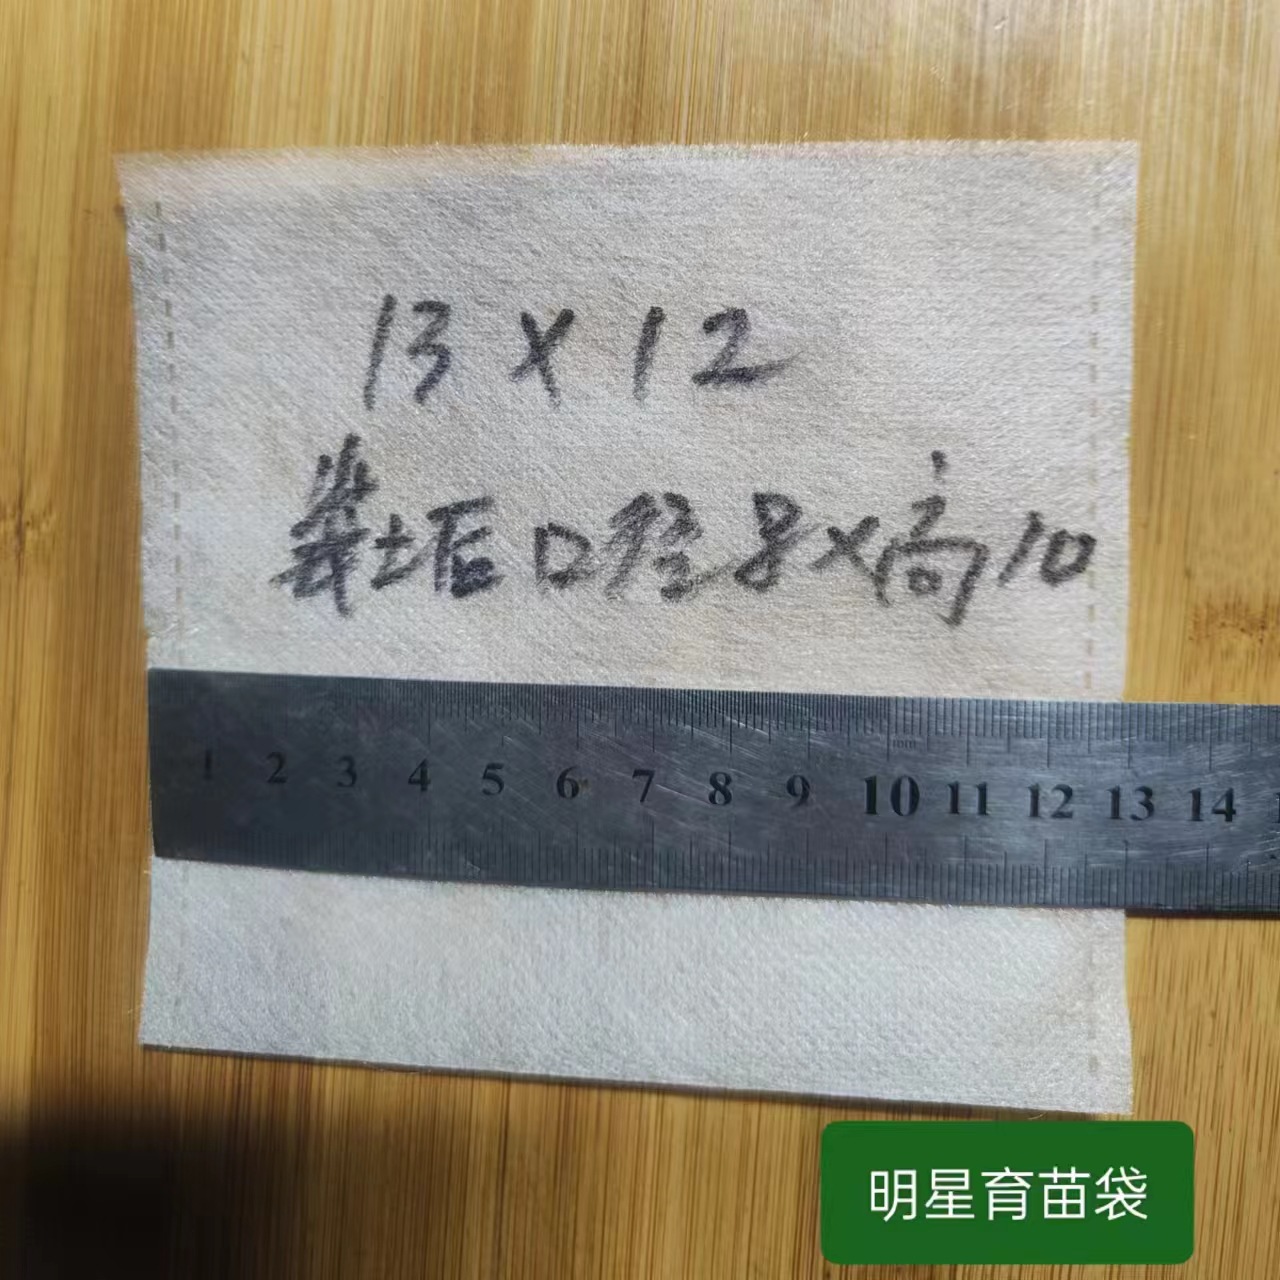 13×12
装土后口径8×高10
mm
1 2 3 4 5 6 7 8 9 10 11 12 13 14
明星育苗袋